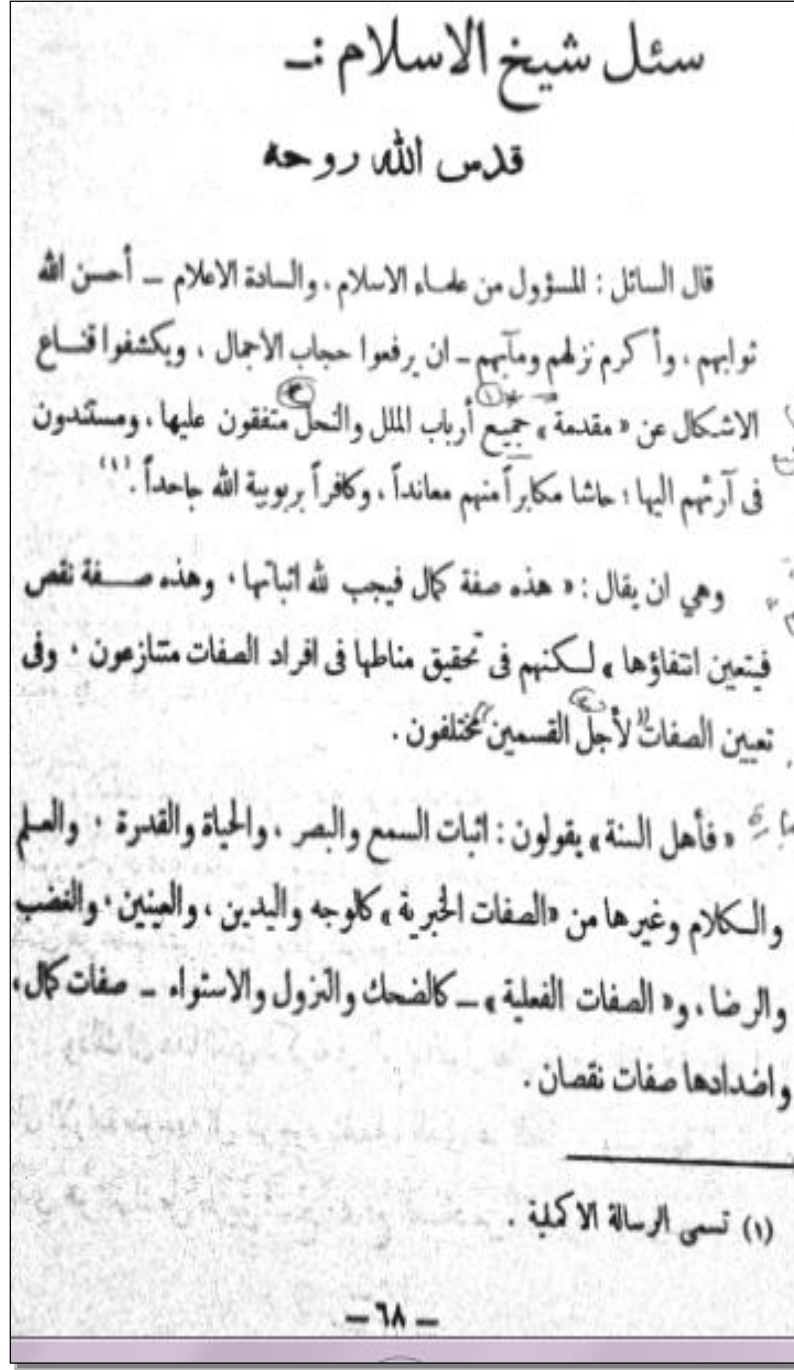 سئل شيخ الاسلام :ـ
قدس الله روحه
قال السائل : المسؤول من علماء الاسلام ، والسادة الاعلام ــ أحسن الله
ثوابهم ، وأكرم نزلهم ومآبهم ــ ان يرفعوا حجاب الاجمال ، ويكشفوا قناع
الاشكال عن « مقدمة » جميع أرباب الملل والنحل متفقون عليها ، ومستندون
فى آرئهم اليها ؛ حاشا مكابراً منهم معانداً ، وكافراً بربوبية الله جاحداً . (١)
وهي ان يقال : « هذه صفة كمال فيجب لله اثباتها ، وهذه صفة نقص
فيتعين انتفاؤها » لكنهم فى تحقيق مناطها فى افراد الصفات متنازعون ، وفى
تعيين الصفات لأجل القسمين مختلفون .
« فأهل السنة » يقولون : اثبات السمع والبصر ، والحياة والقدرة ، والعلم
والكلام وغيرها من «الصفات الخبرية » كالوجه واليدين ، والعينين ، والغضب
والرضا ، و« الصفات الفعلية » ــ كالضحك والنزول والاستواء ــ صفات كمال ،
واضدادها صفات نقصان .
(١) تسمى الرسالة الاكملية .
— ٦٨ —